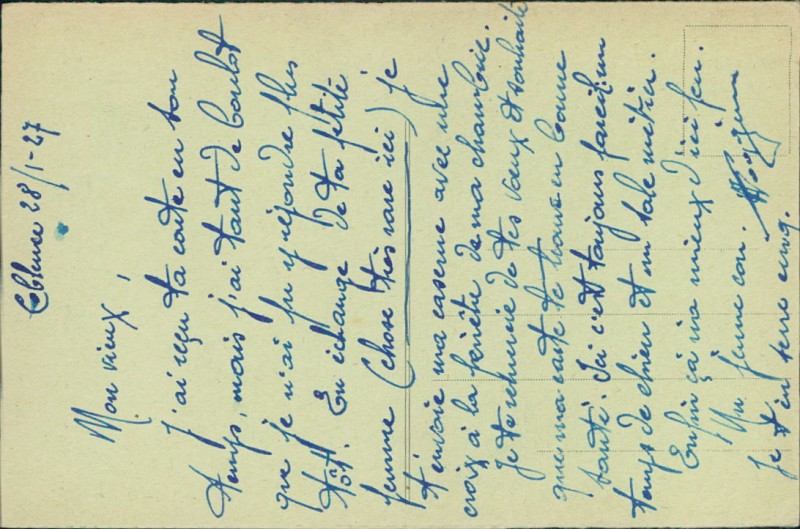 Coblence 28/1-27
Mon vieux,
J'ai reçu ta carte en son
temps, mais j'ai tant de boulot
que je n'ai pu y répondre plus
tôt. En échange de ta petite
femme (chose très rare ici) je
t'envoie ma caserne avec une
croix à la fenêtre de ma chambre.
Je te remercie de tes vœux et souhaite
que ma carte te trouve en bonne
santé. Ici c'est toujours pareil, un
temps de chien et un sale métier.
Enfin ça va mieux d'ici peu.
Un jeune con.
Je t'en serre cinq.